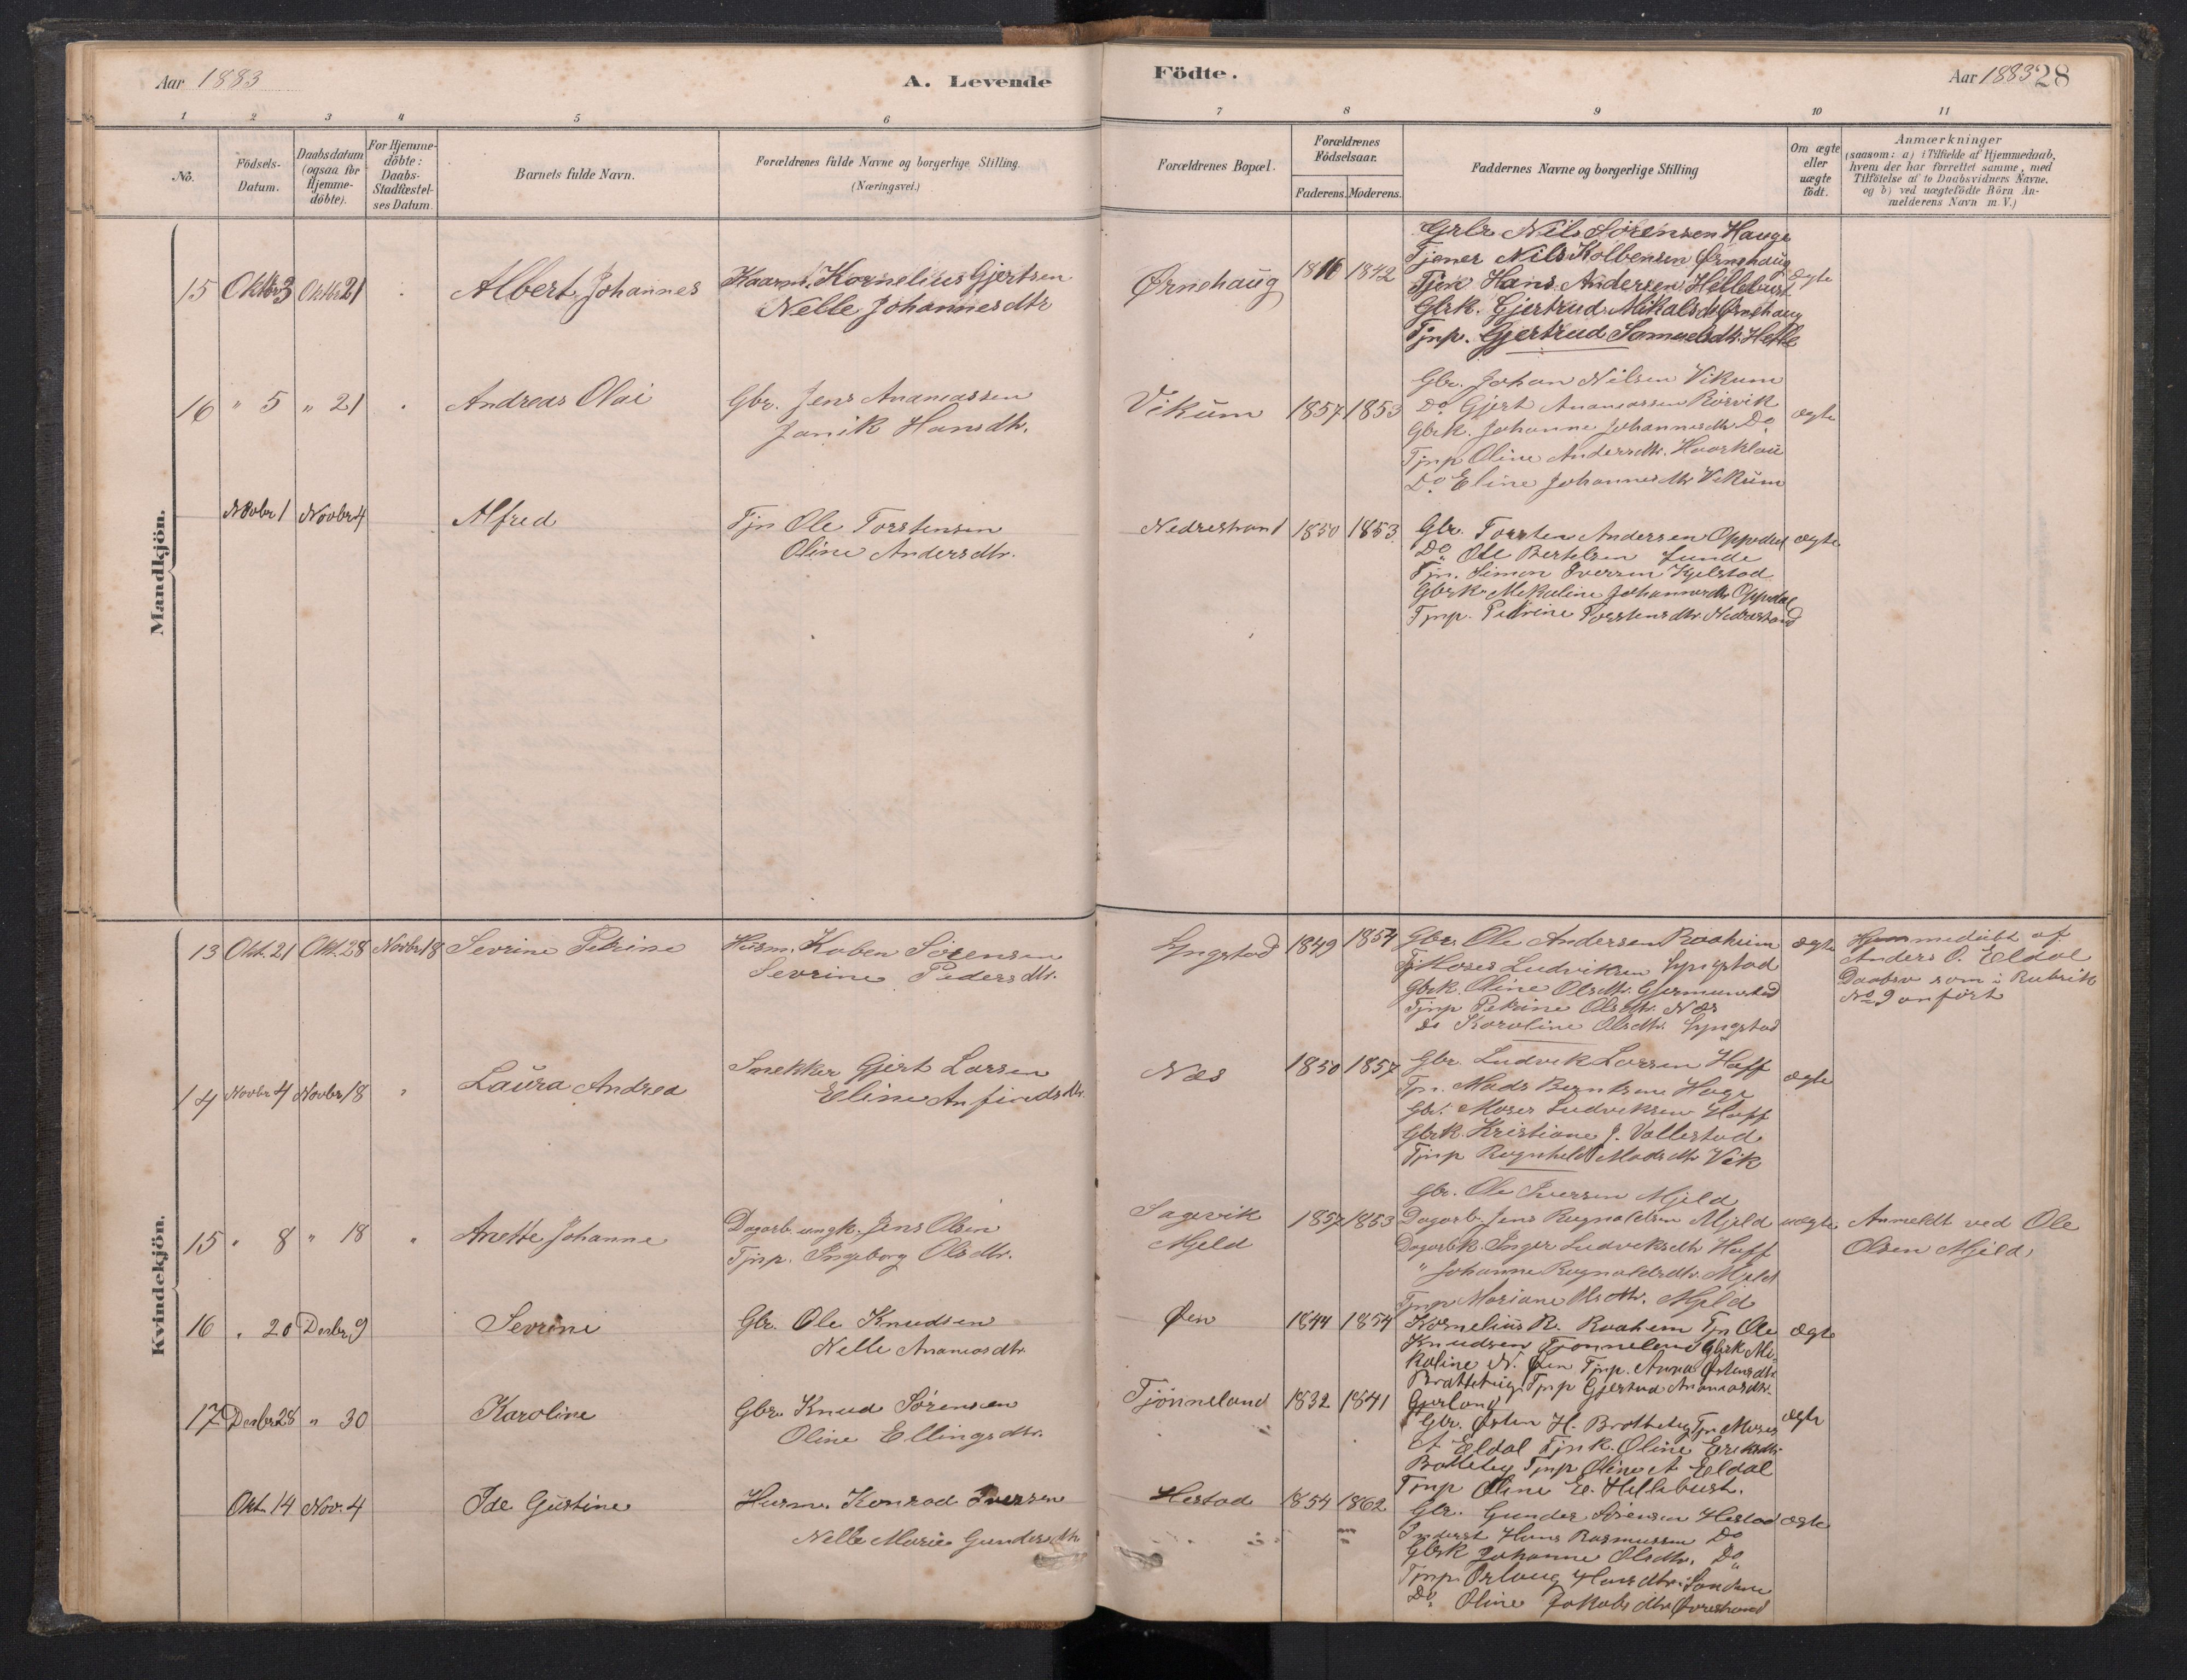 Aar 1883
A. Levende
Födte.
Aar 1883
28
1 2 3 4 5 6 7 8 9 10 11
No.
Födsels-
Datum.
Daabsdatum
(ogsaa for
Hjemme-
döbte).
For Hjemme-
döbte:
Daabs-
Stadfæstel-
ses Datum.
Barnets fulde Navn.
Forældrenes fulde Navne og borgerlige Stilling.
(Næringsvei.)
Forældrenes Bopæl.
Forældrenes
Födselsaar.
Faderens. Moderens.
Faddernes Navne og borgerlige Stilling
Om ægte
eller
uægte
födt.
Anmærkninger
(saasom: a) i Tilfælde af Hjemmedaab,
hvem der har forrettet samme, med
Tilföielse af to Daabsvidners Navne.
og b) ved uægtefödte Börn An-
melderens Navn m. V.)
Mandkjön.
15 Oktbr 3 Oktbr 21 Albert Johannes
Kaarm. Kornelius Gjertsen
Nelle Johannesdtr
Ørnehaug 1816 1842
Grbr Nils Sörensen Hauge
Tjener Nils Kolbensen Ørnehaug
Tjen Hans Andersen Hellebust
Gbrk. Gjertrud Mikalsdtr Ørnehaug
Tjnp. Gjertrud Samuelsdtr. Hatle
ægte
16 " 5 " 21 Andreas Olai
Gbr. Jens Ananiassen
Janik Hansdtr.
Vikum 1857 1853
Gbr. Johan Nilsen Vikum
Do Gjert Ananiassen Rörvik
Gbrk. Johanne Johannesdtr Do
Tjnp Oline Andersdtr. Havrklau
Do. Eline Johannesdtr Vikum
ægte
Novbr 1 Novbr 4 Alfred
Tjn Ole Torstensen
Oline Andersdtr.
Nedrestrand 1850 1853
Gbr. Torsten Andersen Oppedal
Do. Ole Bertelsen Lunde
Tjn. Simon Iversen Kjelstad
Gbrk. Mikaline Johannesdtr Oppdal
Tjnp. Petrine Torstensdtr Nedrestrand
ægte
Kvindekjön.
13 Okt. 21 Okt. 28 Novbr 18 Sevrine Petrine
Husm. Kaben Sörensen
Sevrine Pedersdtr.
Lyngstad 1849 1854
Gbr. Ole Andersen Raaheim
Tj Moses Ludviksen Lyngstad
Gbrk. Oline Olsdtr. Gjermunstad
Tjnp Petrine Olsdtr. Næs
do Karoline Olsdtr. Lyngstad
ægte
Hjemmedöbt af
Anders O. Eldal
Daabsv som i Rubrik
No 9 anfört
14 Novbr 4 Novbr 18 " Laura Andrea
Snekker Gjert Larsen
Eline Anfindsdtr.
Næs 1850 1857
Gbr. Ludvik Larsen Haff
Tjn. Mads Berntsen Hage
Gbr. Moses Ludviksen Haff
Gbrk. Kristiane J. Vallestad
Tjnp Ragnhild Madsdtr Vik
ægte
15 " 8 " 18 " Anette Johanne
Dagarb. ungk. Jens Olsen
Tjnp. Ingeborg Olsdtr.
Sagevik
Mjeld
1857 1853
Gbr. Ole Iversen Mjeld
Dagarb. Jens Ragnaldsen Mjeld
Dagarbk. Inger Ludviksdtr Haff
" Johanne Ragnaldsdtr. Mjeld
Tjnp Mariane Olsdtr. Mjeld
uægte
Anmeldt ved Ole
Olsen Mjeld.
16 " 20 Desbr. 9 Sevrine
Gbr. Ole Knudsen
Nelle Ananiasdtr
Øen 1844 1854
Kornelius R. Raaheim Tjn Ole
Knudsen Tjönneland Gbrk Mi-
kaline N. Øen Tjnp. Anna Østensdtr
Bratteteig Tjnp Gjertrud Ananiasdtr.
Gjerland
ægte
17 Desbr 28 " 30 Karoline
Gbr. Knud Sørensen
Oline Ellingsdtr.
Tjønneland 1832 1841
Gbr. Østen H. Bratteteig Tjn Moses
A Eldal Tjnk. Oline Eriksdtr
Bratteteig Tjnp Oline A Eldal
Tjnp Oline E. Hellebust.
ægte
Okt. 14 Nov. 4 Ide Gustine
Husm. Konrad Iversen
Nelle Marie Gundersdtr
Hestad 1854 1862
Gbr. Gunder Sörensen Hestad
Inderst Hans Rasmussen Do
Gbrk Johanne Olsdtr. Do
Tjnp. Ørlaug Hansdtr. Sandene
Do. Oline Jakobsdtr Øvrestrand
ægte